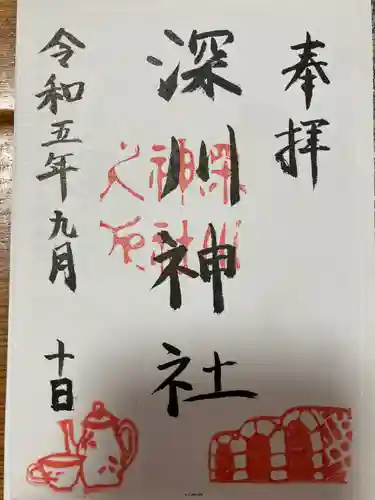 奉拝
深川神社
令和五年九月十日